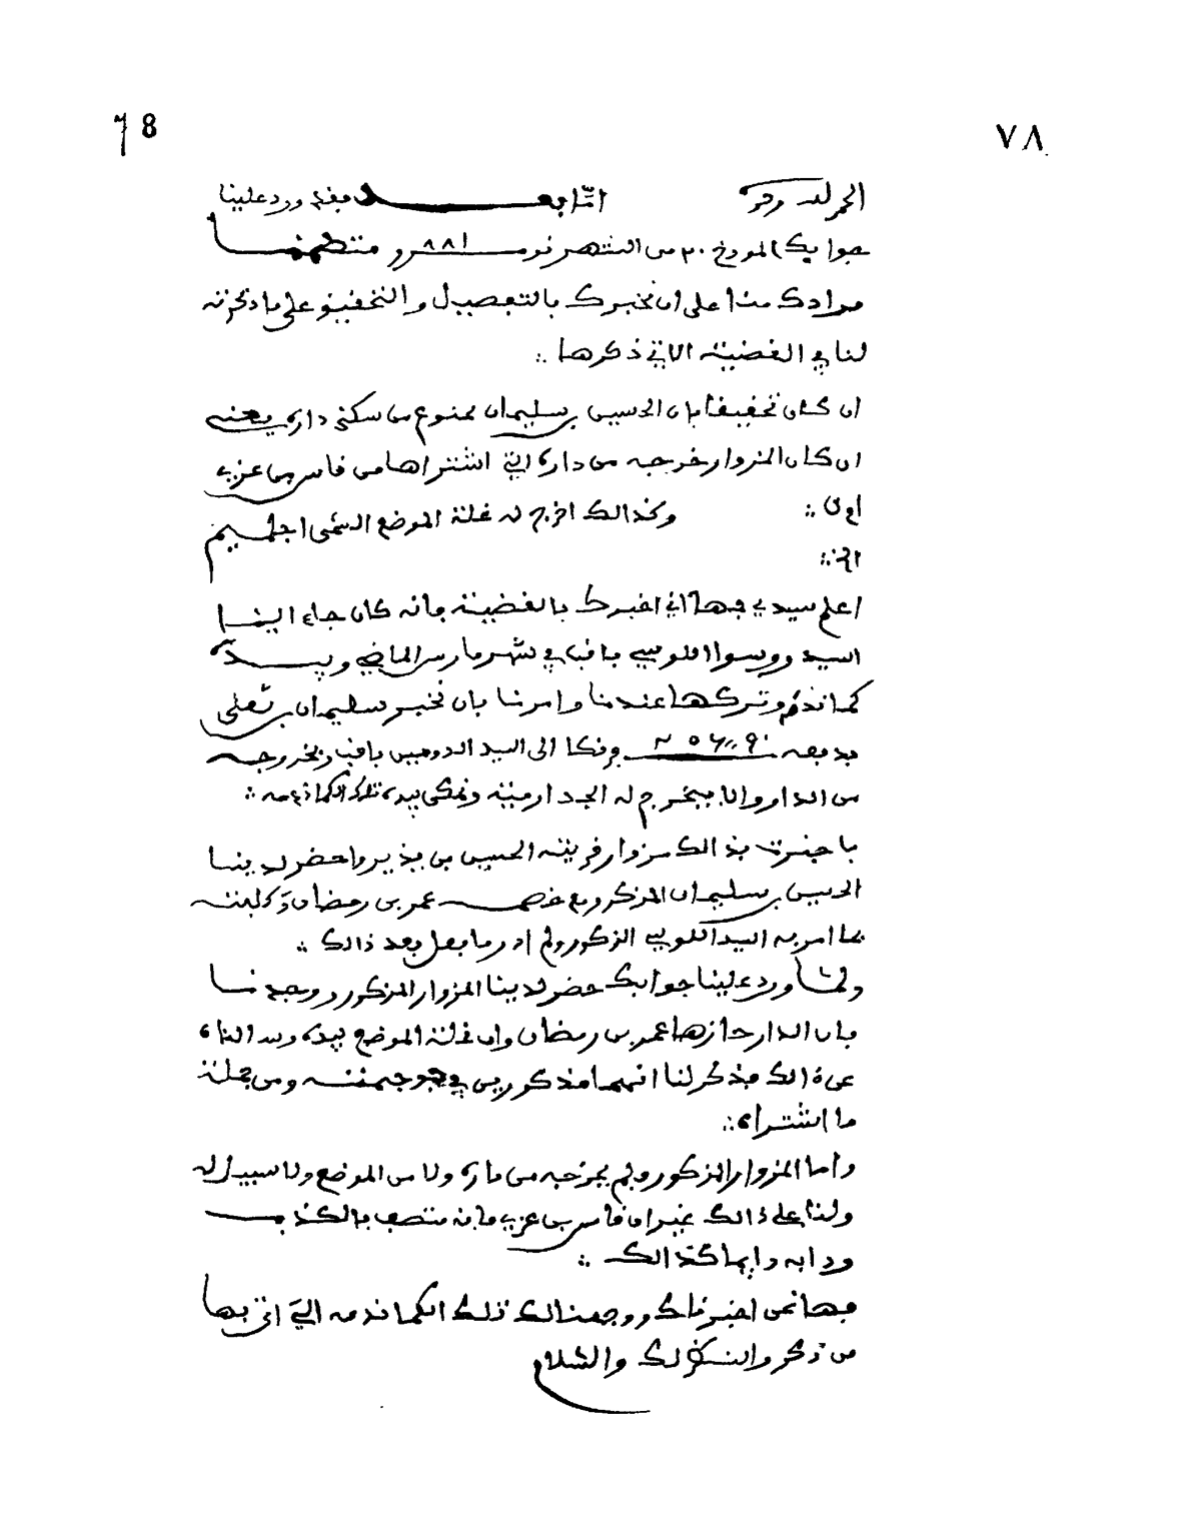 78 ٧٨
الحمد لله وحده امّا بعد فقد ورد علينا
جوابك المورخ ٣٠ من الشهر نومر ١٨٨ و متضمنا
مرادك منا على ان نخبرك بالتفصيل والتحقيق على ما ذكرته
لنا في القضية الاتي ذكرها ؞
ان كان تحقيقا بان الحسين بن سليمان ممنوع من سكنى داره يعني
ان كان المزوار خرجه من داره التي اشتراها من فاس بن عزي
او لا ؞ وكذالك اخرج له غلة الموضع المسمى
الخ ؞
اعلم سيدي فها اني اخبرك بالقضية فانه كان جاء الينا
السيد بافنا في شهر مارس الماضي وبيده
كماندمه وتركها عندنا وامرنا بان نخبر سليمان بن علي
بدفعه فرنكا الى السيد بافنا وبخروجه
من الدار والا فيخرج له الجدارمية وتمكن بيده تلك الكماندمه ؞
فاخبرت بذالك مزوار قريته الحسين بن يذير واحضر لدينا
الحسين بن سليمان المذكور مع خصمه عمر بن رمضان وكلمته
بما امر به السيد المذكور ولم ادر ما فعل بعد ذالك ؞
ولما ورد علينا جوابك حضر لدينا المزوار المذكور ووجدنا
بان الدار حازها عمر بن رمضان وان غلة الموضع بيده وسالناه
عن ذالك فذكر لنا انهما مذكورين في ومن جملة
ما اشتراه ؞
واما المزوار المذكور ولم يخرجه من داره ولا من الموضع ولا سبيل له
ولنا على ذالك غير ان فاس بن عزي فانه متصف بالكذب
ودابه دايما كذالك ؞
فها نحن اخبرناك ووجهنا لك تلك الكماندمه التي اتى بها
من ذكر والشكر لك والسلام